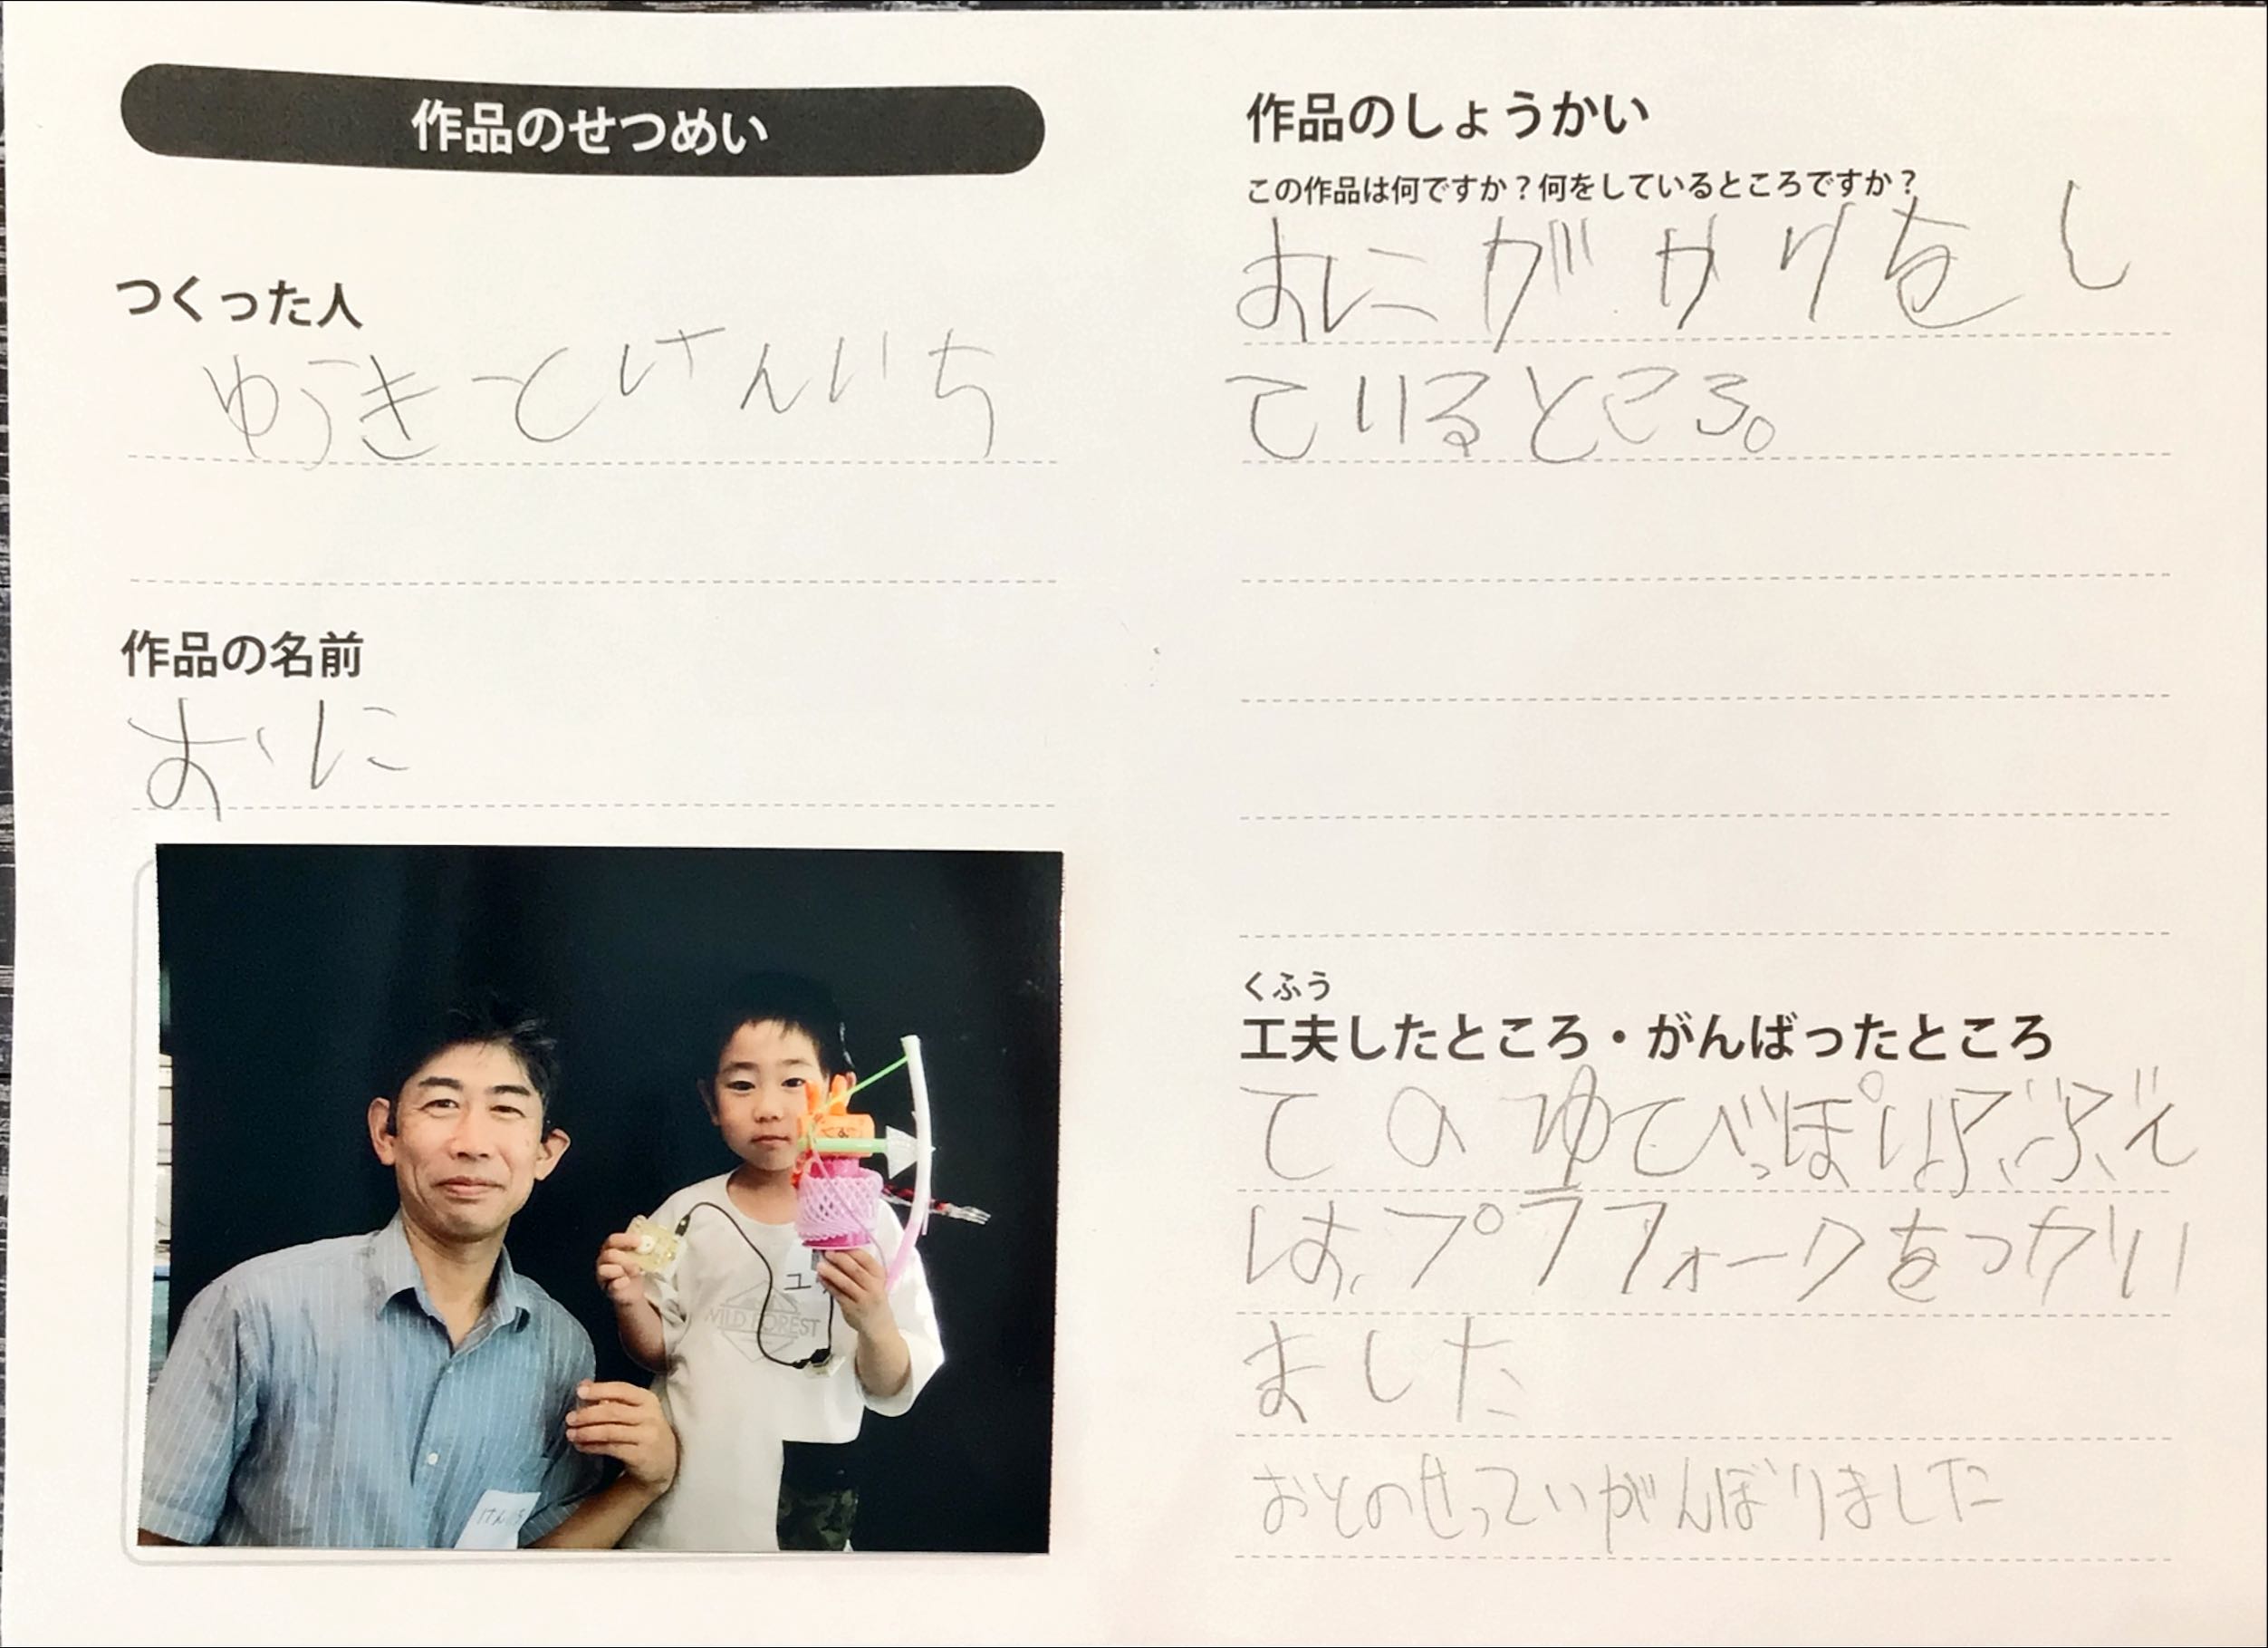 作品のせつめい
つくった人
ゆうきとけんいち
作品の名前
おに
けんいち
ユ
WILD FOREST
作品のしょうかい
この作品は何ですか？何をしているところですか？
おにがかりをし
ているところ。
くふう
工夫したところ・がんばったところ
ての
は、プラフォークをつかい
ました
おとのせっていがんばりました